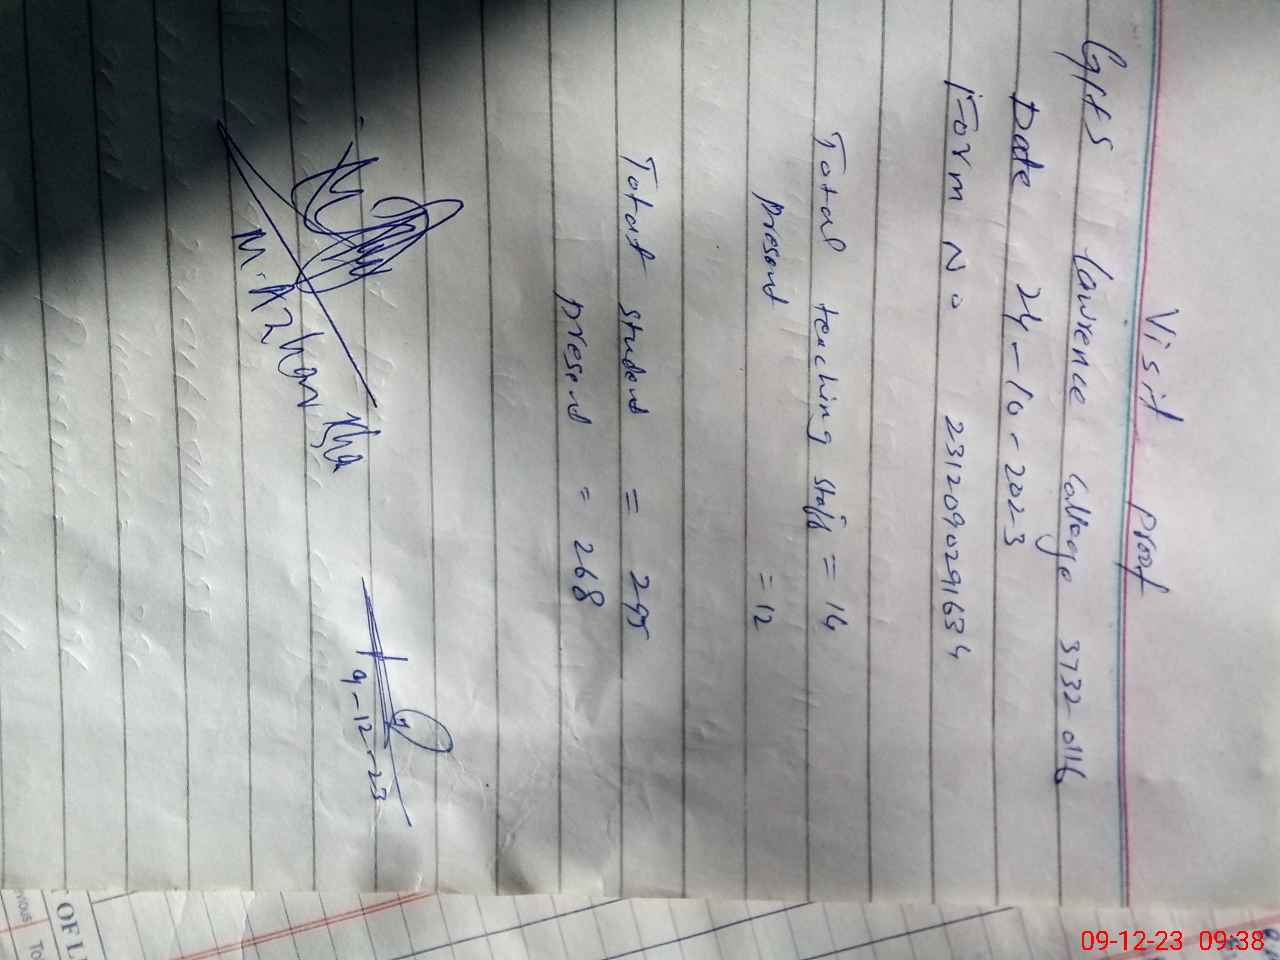 Visit proof
GHS lawrence college 37320116
Date 24-10-2023
Form No 2312090291634
Total teaching staff = 14
present = 12
Total student = 295
present = 268
M. Azhar
9-12-23
OF L
vious
To
09-12-23 09:38